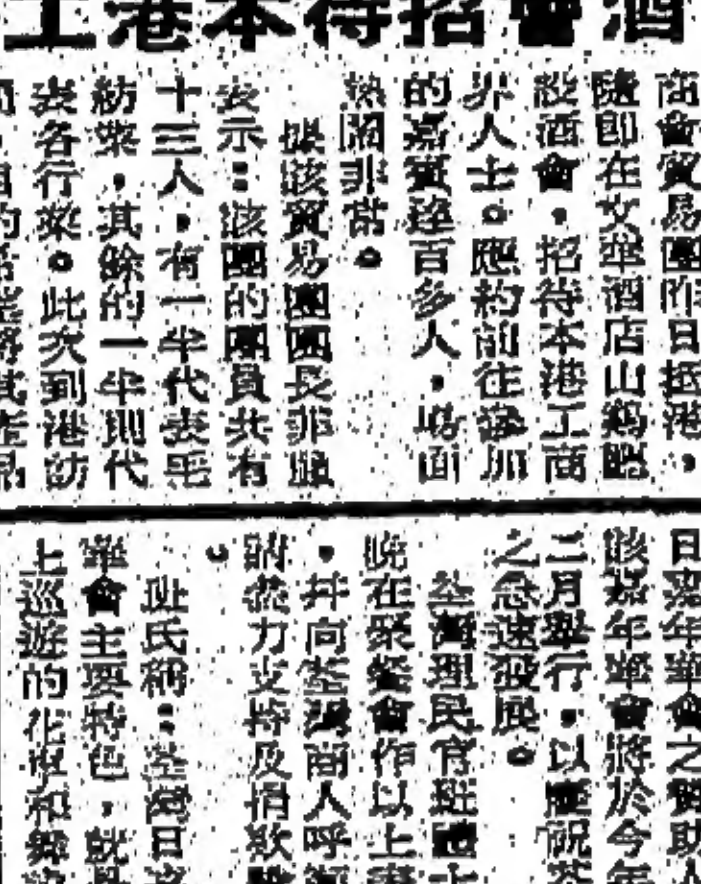 酒會招待本港工
商會貿易團昨日抵港，
隨即在文華酒店山鷄
設酒會，招待本港工商
界人士。應約前往參加
的嘉賓達百多人，場面
熱鬧非常。
據該貿易團團長非
表示：該團的團員共有
十三人，有一半代表毛
紡業，其餘的一半則代
表各行業。此次到港訪
日嘉年華會之贊助人
該嘉年華會將於今年
二月舉行，以慶祝荃
之急速發展。
荃灣理民官班禮士
晚在聚餐會作以上
，并向荃灣商人呼
請盡力支持及捐款
。
氏稱：荃灣日
華會主要特色，就是
巡遊的化裝和舞